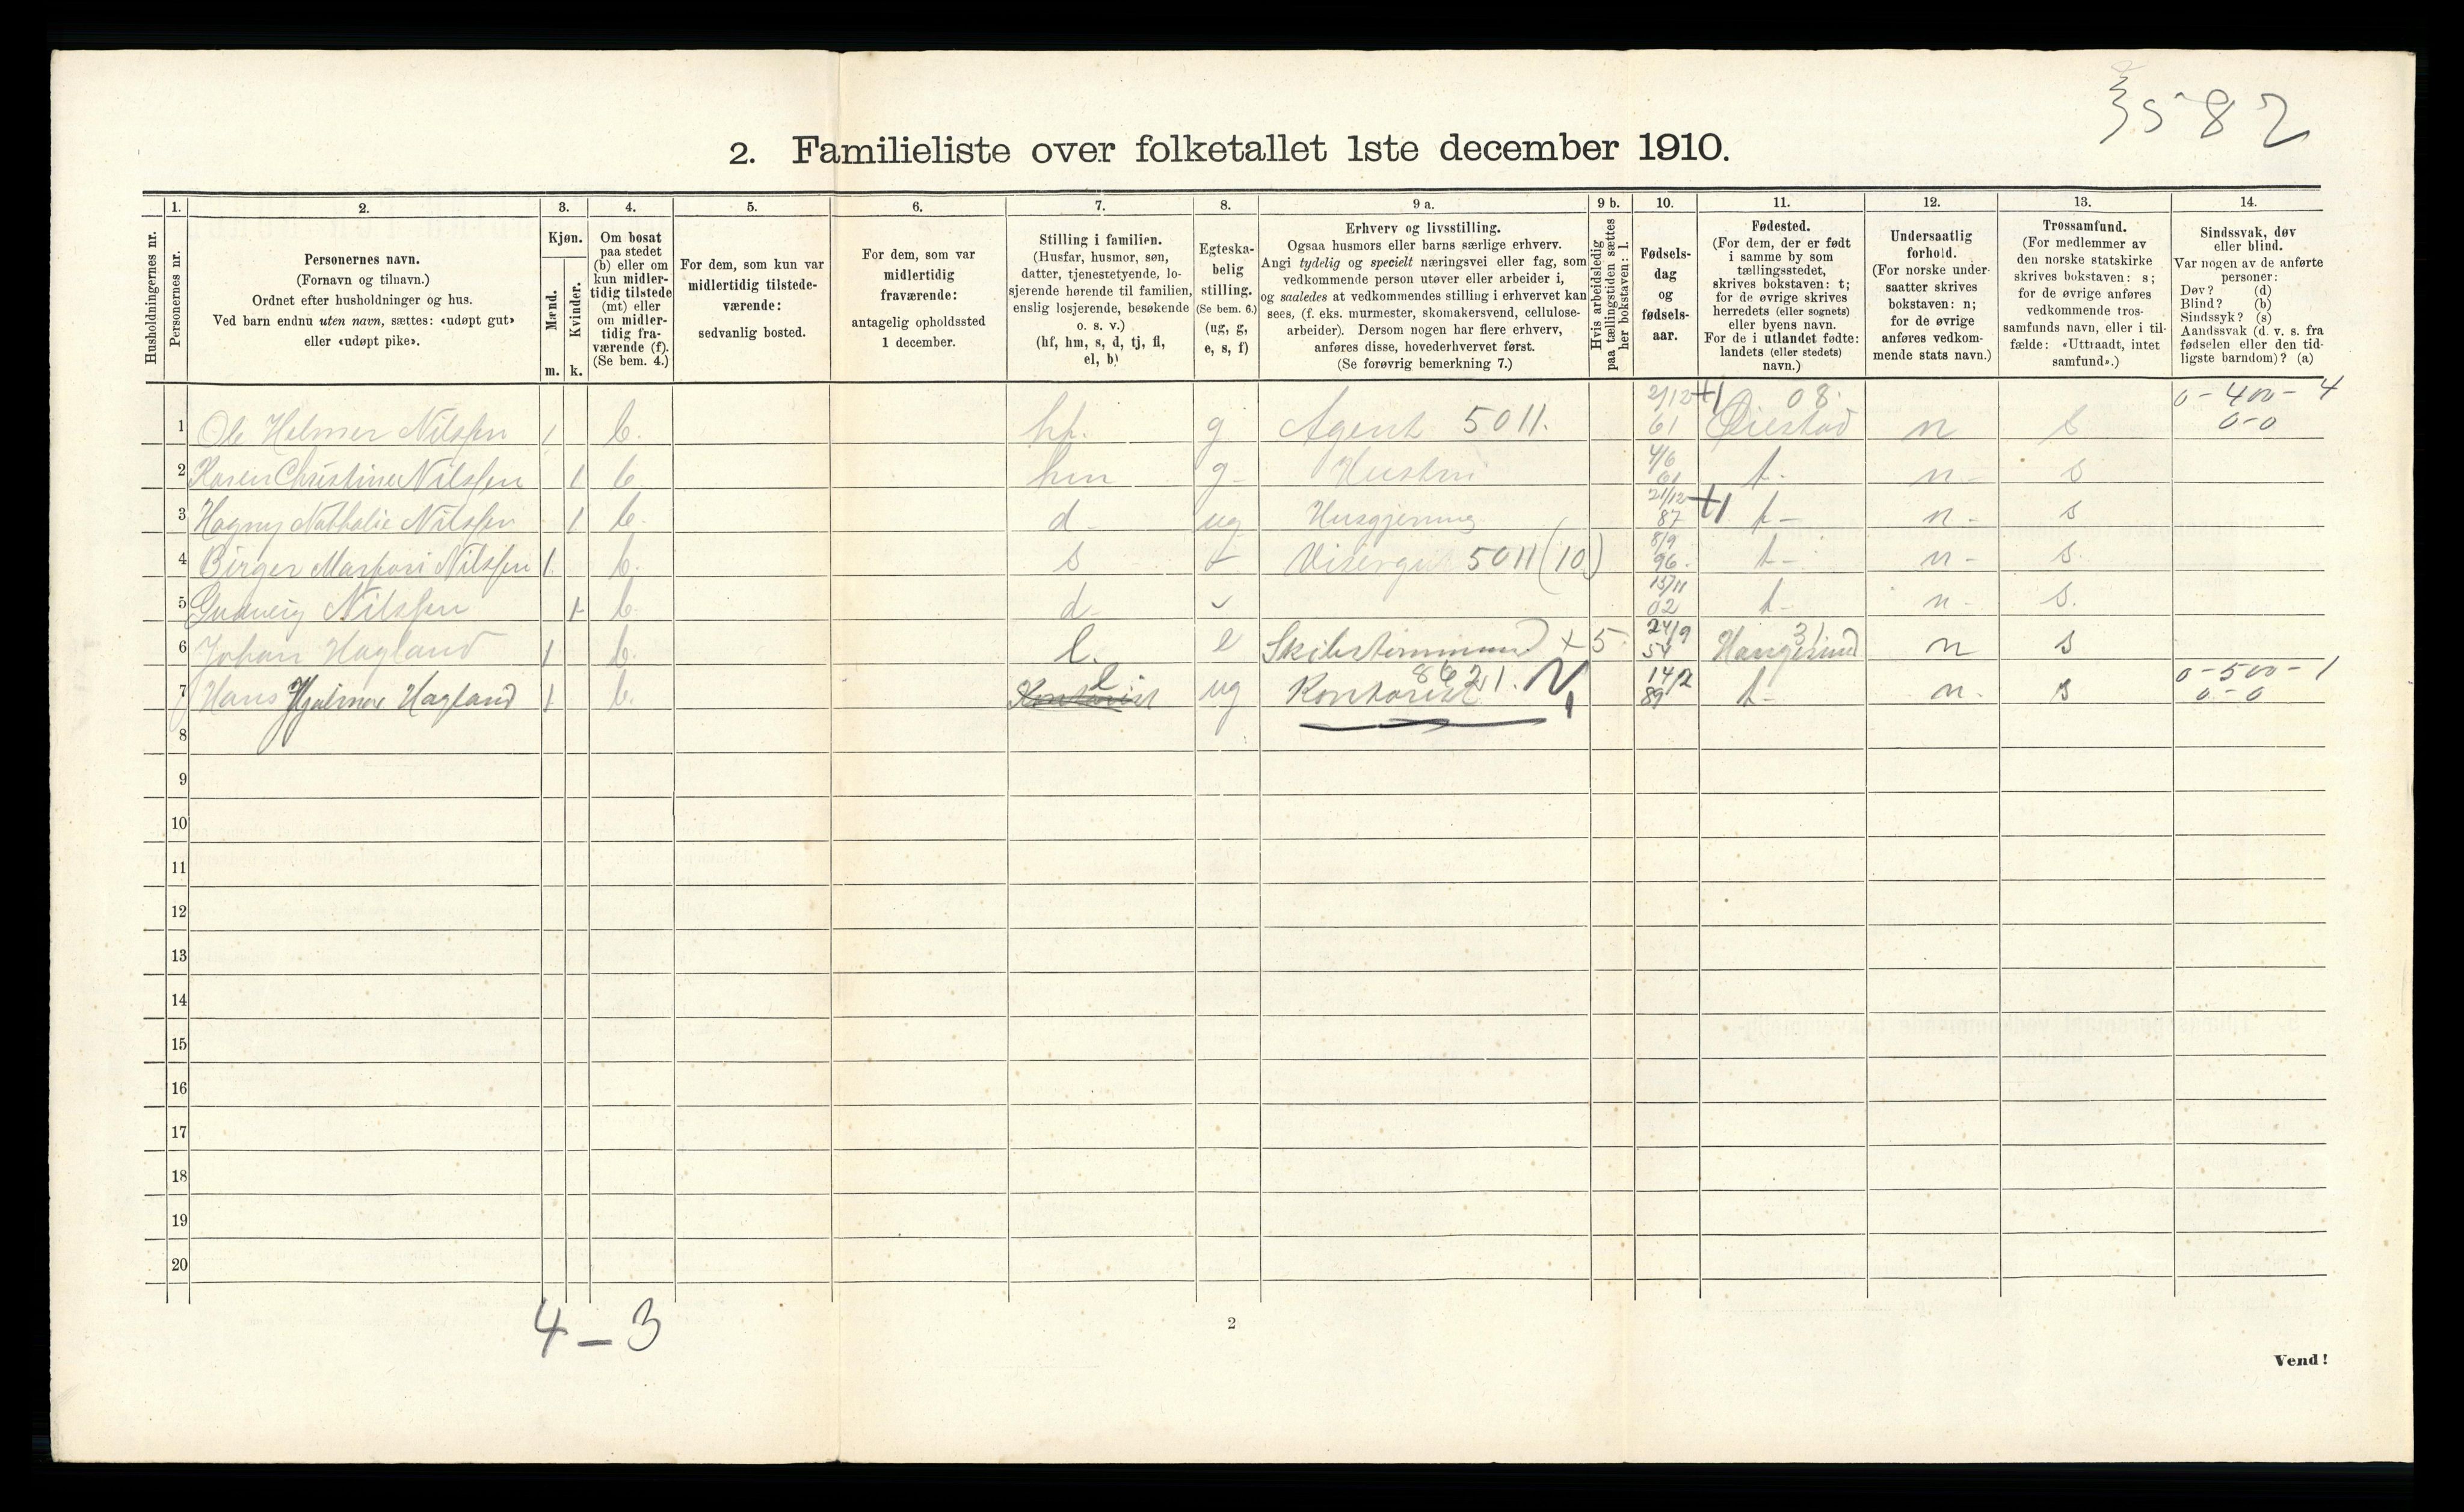 3582
2. Familieliste over folketallet 1ste december 1910.
Husholdningernes nr.
1.
Personernes nr.
2.
Personernes navn.
(Fornavn og tilnavn.)
Ordnet efter husholdninger og hus.
Ved barn endnu uten navn, sættes: «udøpt gut»
eller «udøpt pike».
3.
Kjøn.
Mænd.
Kvinder.
m. k.
4.
Om bosat
paa stedet
(b) eller om
kun midler-
tidig tilstede
(mt) eller
om midler-
tidig fra-
værende (f).
(Se bem. 4.)
5.
For dem, som kun var
midlertidig tilstede-
værende:
sedvanlig bosted.
6.
For dem, som var
midlertidig
fraværende:
antagelig opholdssted
1 december.
7.
Stilling i familien.
(Husfar, husmor, søn,
datter, tjenestetyende, lo-
sjerende hørende til familien,
enslig losjerende, besøkende
o. s. v.)
(hf, hm, s, d, tj, fl,
el, b)
8.
Egteska-
belig
stilling.
(Se bem. 6.)
(ug, g,
e, s, f)
9 a.
Erhverv og livsstilling.
Ogsaa husmors eller barns særlige erhverv.
Angi tydelig og specielt næringsvei eller fag, som
vedkommende person utøver eller arbeider i,
og saaledes at vedkommendes stilling i erhvervet kan
sees, (f. eks. murmester, skomakersvend, cellulose-
arbeider). Dersom nogen har flere erhverv,
anføres disse, hovederhvervet først.
(Se forøvrig bemerkning 7.)
9 b.
Hvis arbeidsledig
paa tællingstiden sættes
her bokstaven: l.
10.
Fødsels-
dag
og
fødsels-
aar.
11.
Fødested.
(For dem, der er født
i samme by som
tællingsstedet,
skrives bokstaven: t;
for de øvrige skrives
herredets (eller sognets)
eller byens navn.
For de i utlandet fødte:
landets (eller stedets)
navn.)
12.
Undersaatlig
forhold.
(For norske under-
saatter skrives
bokstaven: n;
for de øvrige
anføres vedkom-
mende stats navn.)
13.
Trossamfund.
(For medlemmer av
den norske statskirke
skrives bokstaven: s;
for de øvrige anføres
vedkommende tros-
samfunds navn, eller i til-
fælde: «Uttraadt, intet
samfund».)
14.
Sindssvak, døv
eller blind.
Var nogen av de anførte
personer:
Døv? (d)
Blind? (b)
Sindssyk? (s)
Aandssvak (d. v. s. fra
fødselen eller den tid-
ligste barndom)? (a)
1 Ole Helmer Nilssen 1 b. hf. g Agent 5011. 2/12 61 +1 08. Øiestad n s 0-400-4 0-0
2 Karen Christine Nilssen 1 b hm g- Hustru 4/6 61 t- n- s
3 Hagny Nathalie Nilssen 1 b. d- ug Husgjerning 21/12 87 +1 t- n- s
4 Birger Nilssen 1. b. s Visergut 5011 (10) 8/9 96. t- n- s.
5 Gudveig Nilssen 1 b d- 15/11 02 t- n- s.
6 Johan Hagland 1 b. l. e Skibstømmermand × 5. 24/9 54 31 Haugesund n s
7 Hans Hjalmar Hagland 1 b. Kontorist l ug Kontorist 8621. 14/2 89 t- n. s 0-500-1 0-0
8
9
10
11
12
13
14
15
16
17
18
19
20
4-3
2
Vend!